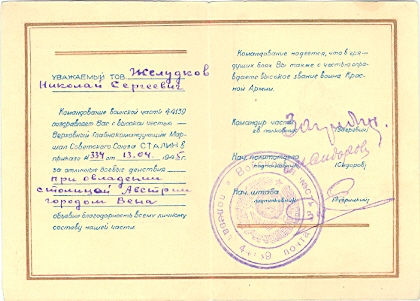 УВАЖАЕМЫЙ ТОВ. Желудков
Николай Сергеевич
Командование воинской части 44139
поздравляет Вас с высокой честью —
Верховный Главнокомандующий Мар-
шал Советского Союза СТАЛИН в
приказе № 334 от 13.04. 1945 г.
за отличные боевые действия
при овладении
столицей Австрии
городом Вена
объявил благодарность всему личному
составу нашей части.
Командование надеется, что в гря-
дущих боях Вы также с честью оправ-
даете высокое звание воина Крас-
ной Армии.
Командир части
гв. полковник
Нач. политотдела
подполковник (Сидоров)
Нач. штаба
подполковник